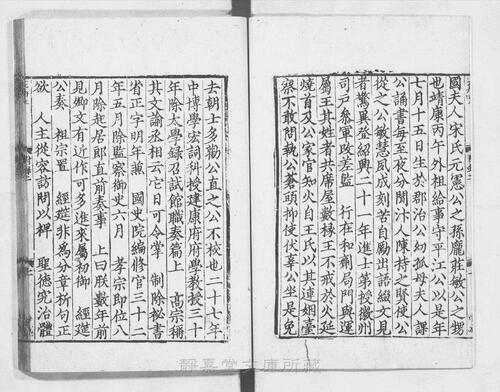 國夫人宋氏元憲公之孫龎莊敏公之甥
也靖康丙午外祖給事守平江公以是年
七月十五日生於郡治公幼孤母夫人課
公誦書每至夜分聞汴人陳持之賢使公
從之公敏慧夙成刻苦自勵出語綴文見
者驚異登紹興二十一年進士第授徽州
司戶叅軍改差監 行在和劑局門與運
屬王其姓者共席屋數椽王不戒於火延
燒首及公家官知火自王氏以其連姻臺
察不敢問執公蒼頭抑使伏辜公坐是免
去朝士多勸公直之公不校也二十七年
中博學宏詞科授建康府府學教授三十
年除太學錄召試館職奏篇上 高宗稱
其文論丞相云它日可令掌 制除秘書
省正字明年兼 國史院編修官三十二
年五月除監察御史六月 孝宗即位八
月除起居郎直前奏事 上曰朕數年前
見卿文有近作可多進來屬初御 經筵
公奏 祖宗置 經筵非為分章析句正
欲 人主從容訪問以裨 聖德究治體
靜嘉堂文庫所藏